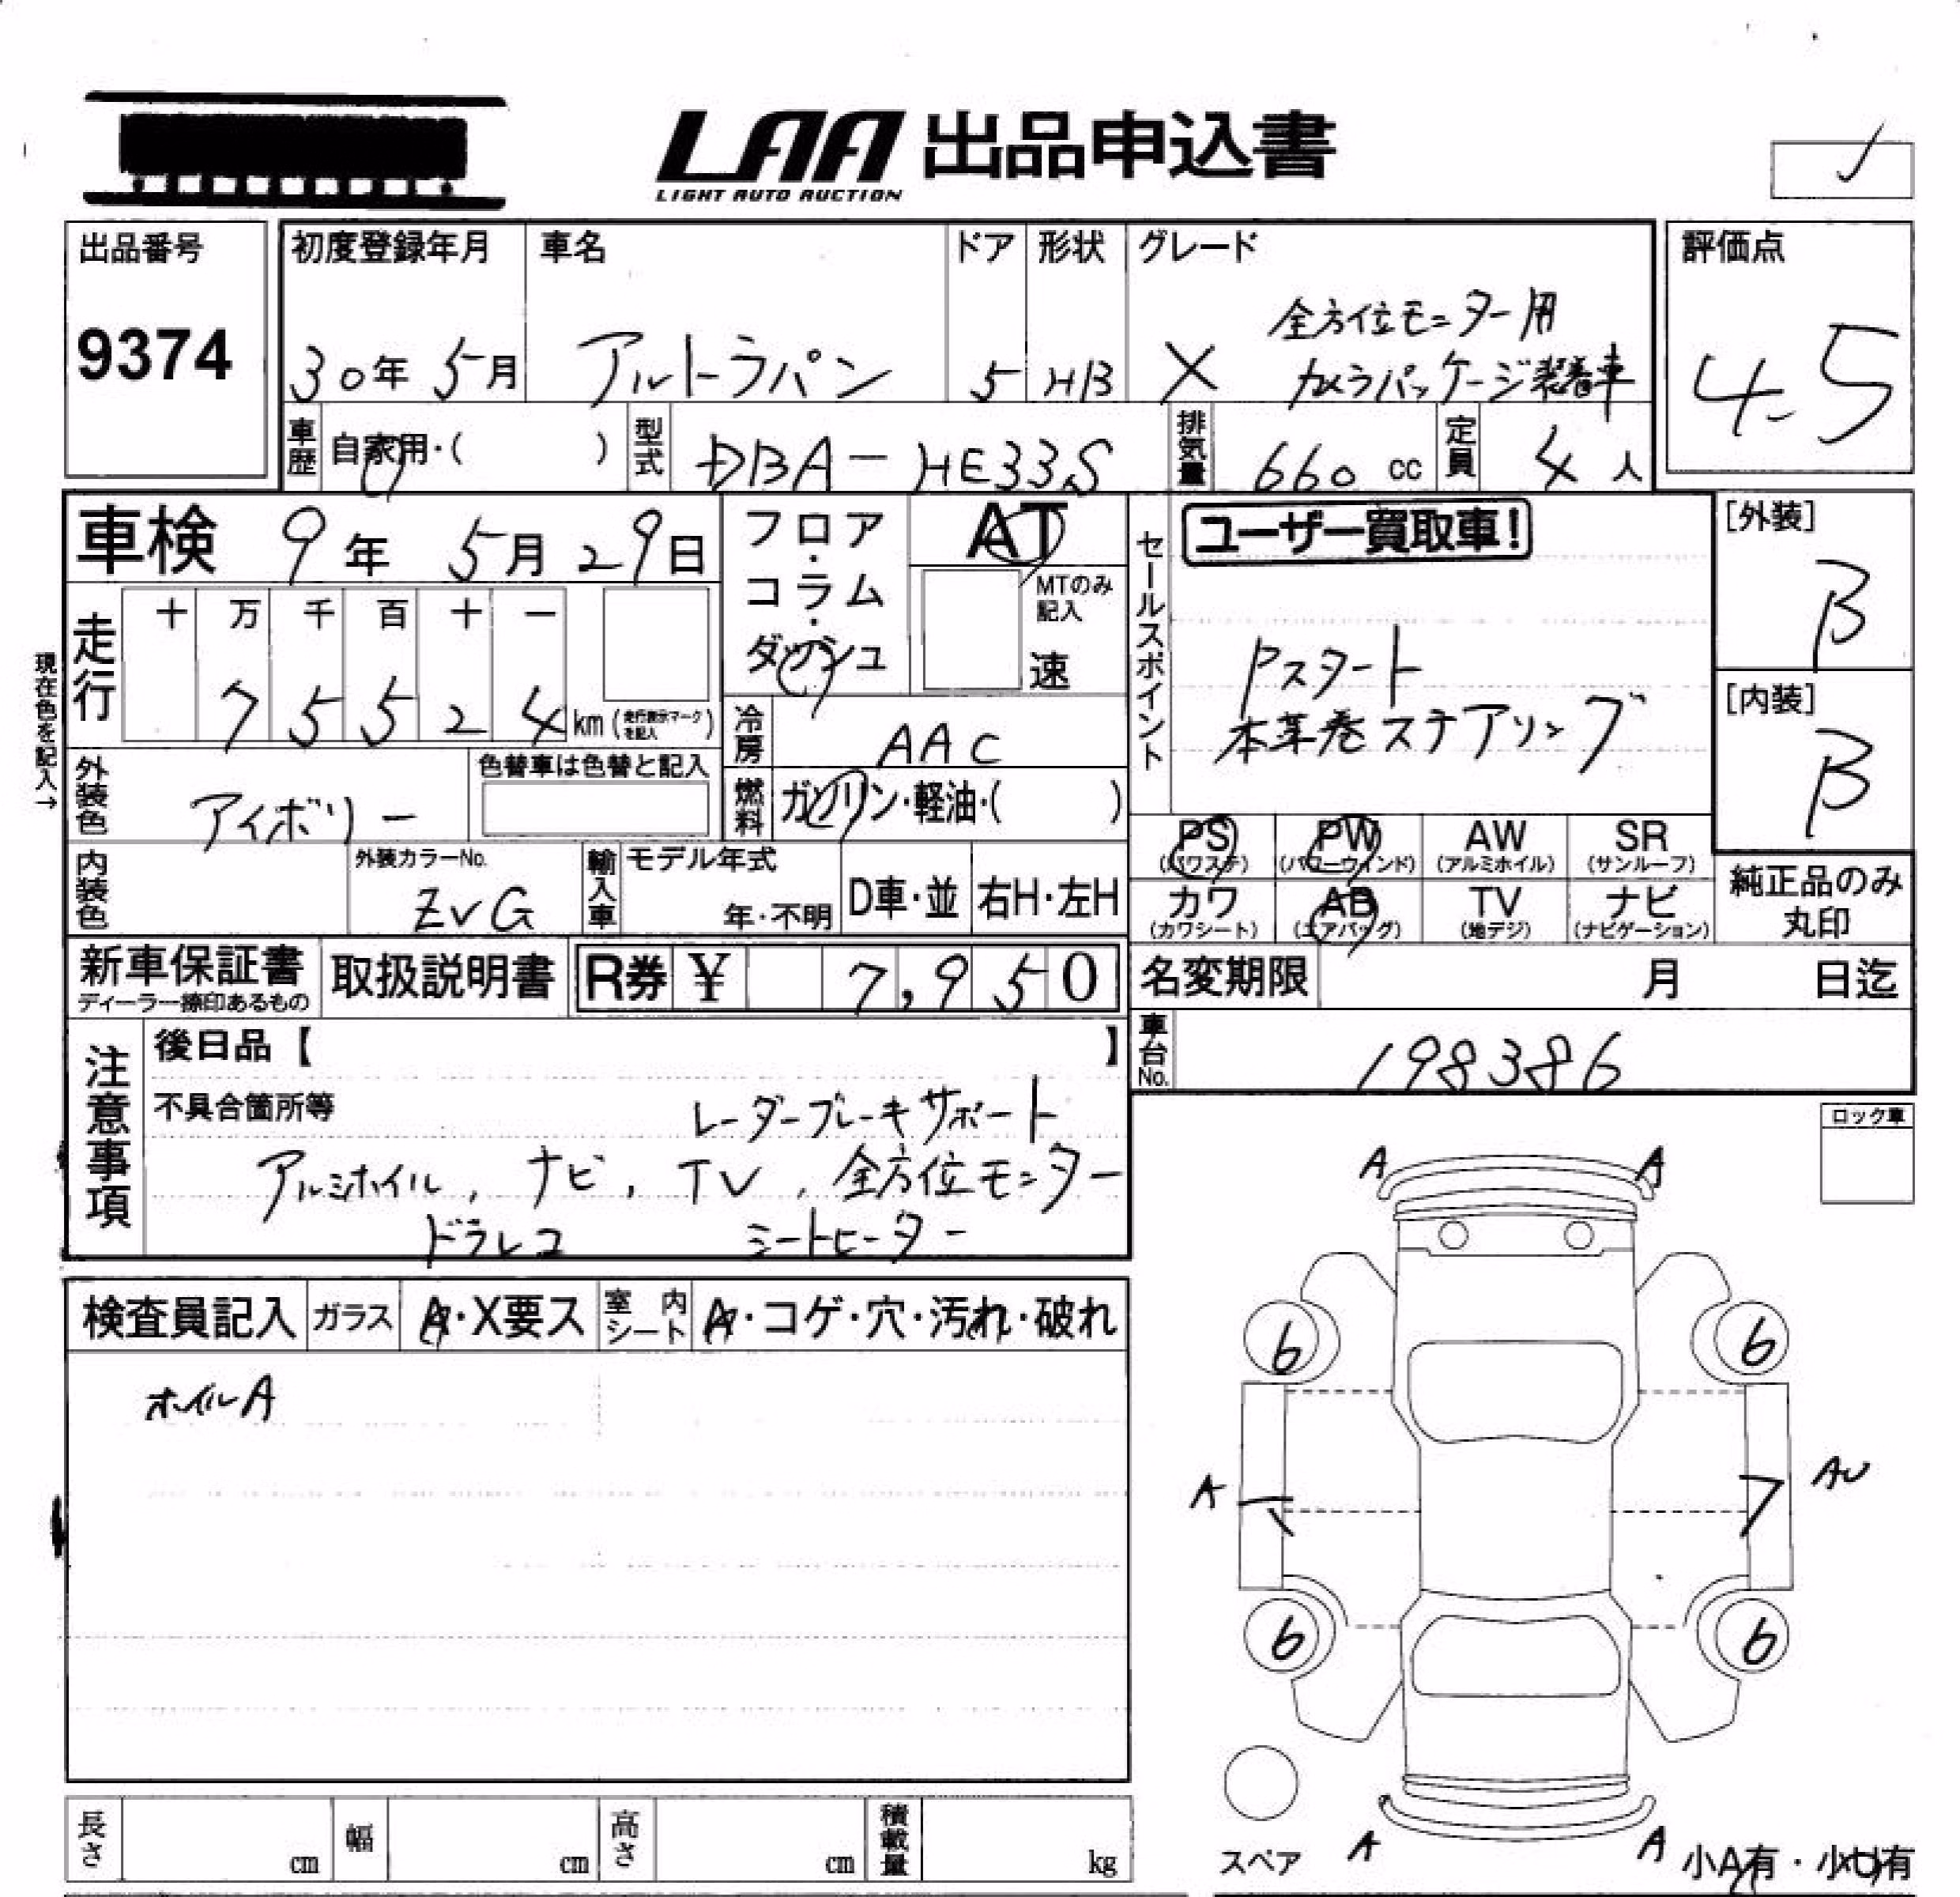 LAA 出品申込書
LIGHT AUTO AUCTION
出品番号
9374
初度登録年月
30年 5月
車名
アルトラパン
ドア
5
形状
HB
グレード
X 全方位モニター用
カメラパッケージ装着車
評価点
4.5
車歴 自家用・( )
型式 DBA-HE33S
排気量 660 cc
定員 4 人
車検 9年 5月 29日
フロア・コラム・ダッシュ
AT
MTのみ記入
速
セールスポイント
ユーザー買取車!
Pスタート
本革巻ステアリング
[外装]
B
[内装]
B
現在色を記入→
走行
十 万 千 百 十 一
7 5 5 2 4 km (走行表示マークを記入)
冷房 AAC
燃料 ガソリン・軽油・( )
外装色 アイボリー
色替車は色替と記入
内装色
外装カラーNo.
ZVG
輸入車
モデル年式
年・不明
D車・並
右H・左H
PS (パワステ)
PW (パワーウィンド)
AW (アルミホイル)
SR (サンルーフ)
カワ (カワシート)
AB (エアバッグ)
TV (地デジ)
ナビ (ナビゲーション)
純正品のみ
丸印
新車保証書
ディーラー捺印あるもの
取扱説明書
R券 ¥ 7,950
名変期限 月 日迄
車台No. 198386
注意事項
後日品【 】
不具合箇所等
レーダーブレーキサポート
アルミホイル, ナビ, TV, 全方位モニター
ドラレコ シートヒーター
ロック車
検査員記入
ガラス A・X要ス
室内シート A・コゲ・穴・汚れ・破れ
ホイルA
A A
6 6
A AU
6 6
スペア
A A
小A有・小U有
長さ cm
幅 cm
高さ cm
積載量 kg